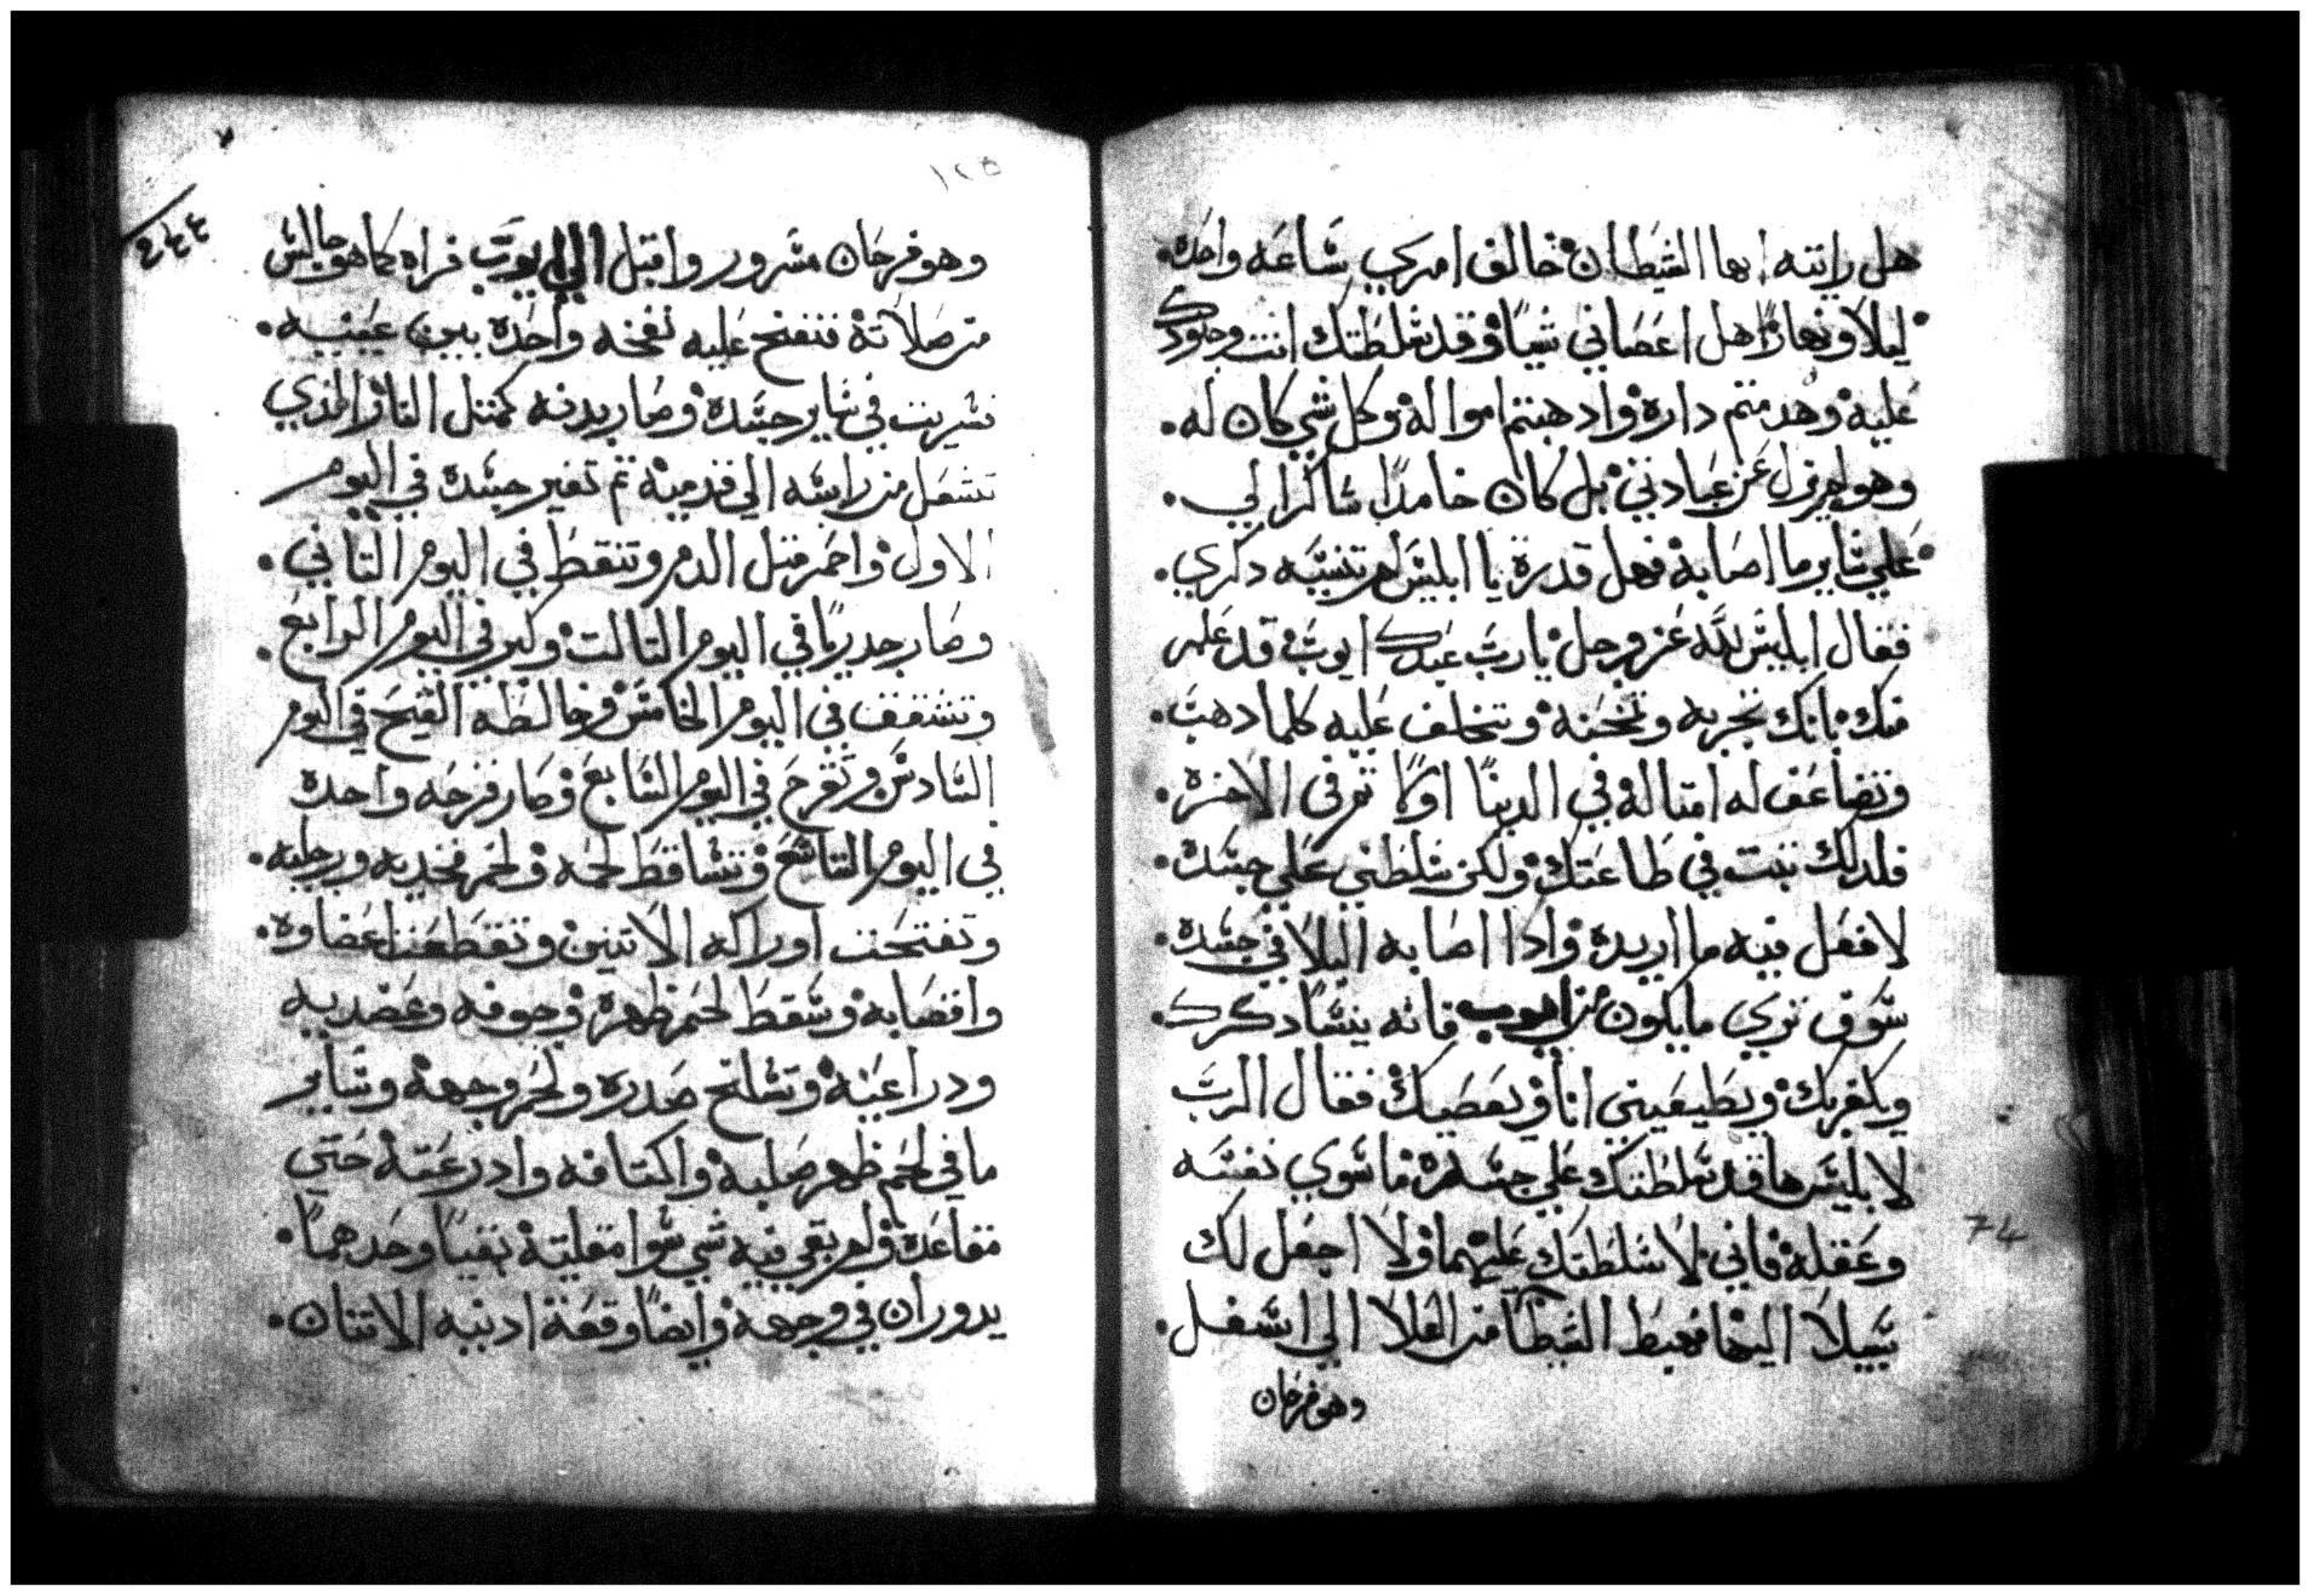 هل رايته ايها الشيطان خالف امري ساعه واحده.
ليلاً ونهارًا هل اعصاني شيًا وقد سلطتك انت وجنودك
عليه وهدمتم داره واذهبتم امواله وكل شي كان له.
وهو لم يزل عن عبادتي بل كان حامدًا شاكرًا لي.
علي ساير ما اصابه فهل قدرة يا ابليس لم تنسيه دكري.
فقال ابليس لله عز وجل يا رب عبدك ايوب قد علم
منك بانك تجربه وتمحنه وتخلف عليه كلما دهب.
وتضاعف له امثاله في الدنيا اولاً ثم في الاخره.
فلدلك ثبت في طاعتك ولكن سلطني علي جسده.
لافعل فيه ما اريده وادا اصابه البلا في جسده.
سوف تري ما يكون من ايوب فانه ينسا دكرك.
ويكفر بك ويطيعيني انا ويعصيك فقال الرب
لابليس ها قد سلطتك علي جسده ما سوي نفسه
وعقله فاني لا سلطتك عليهما ولا اجعل لك
سبيلاً اليهما فهبط الشيطان من العلا الي اسفل.
وهو فرحان
١٢٥
٢٤٤
وهو فرحان مسرور واقبل الي ايوب فراه كما هو جالس
من صلاته فنفخ عليه نفخه واحده بين عينيه.
فسريت في ساير جسده وصار بدنه كمثل النار الذي
تشعل من راسه الي قدميه ثم تغير جسده في اليوم
الاول واحمر مثل الدم وتنقط في اليوم الثاني.
وصار جدريًا في اليوم الثالث وكبر في اليوم الرابع.
وتشقق في اليوم الخامس وخالطه القيح في اليوم
السادس وتقرح في اليوم السابع وصار قرحه واحده
في اليوم التاسع وتساقط لحمه ولحم فخديه ورجليه.
وتفتحت اوراكه الاتنين وتقطعت اعضاوه.
واقصابه وسقط لحم ظهره وجوفه وعضديه
ودراعيه وتسلخ صدره ولحم وجهه وساير
ما في لحم ظهر صلبه واكتافه وادرعته حتي
مقاعده ولم بقي فيه شي سوا مقليته بقيًا وحدهمًا.
يدوران في وجهه وايضًا وقعة ادنيه الاتنان.
74